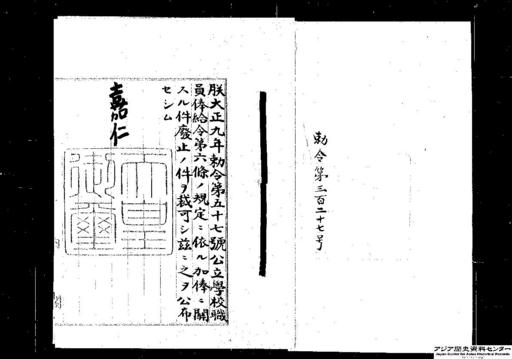 勅令第三百二十七号
朕大正九年勅令第五十七號公立學校職
員俸給令第六條ノ規定ニ依ル加俸ニ關
スル件廢止ノ件ヲ裁可シ茲ニ之ヲ公布
セシム
嘉仁
天皇御璽
アジア歴史資料センター
Japan Center for Asian Historical Records